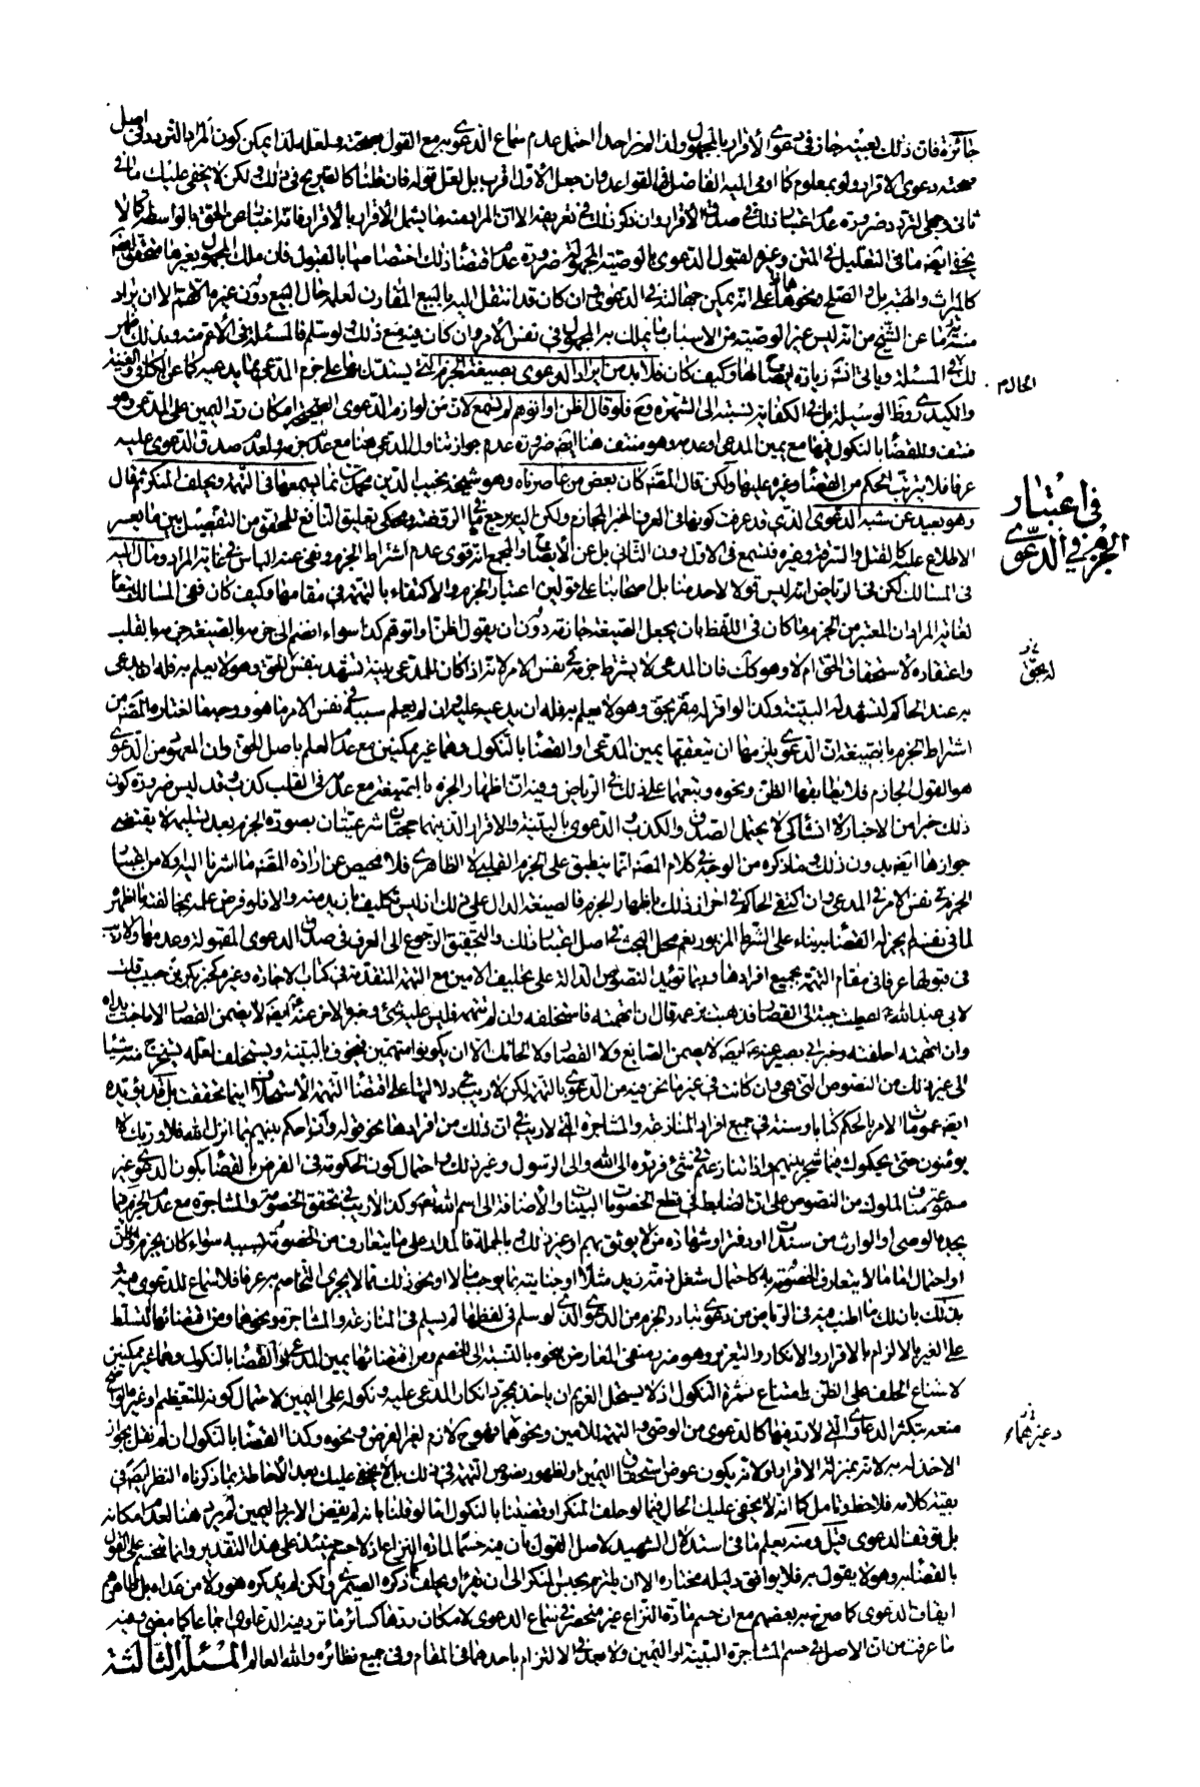 جائزة فان ذلك بعينه جاز في دعوى الاقرار بالمجهول ولذا لم نر احدا احتمل عدم سماع الدعوى به مع القول بصحته ولعله لذا يمكن كون المراد الترديد في اصل
صحته دعوى الاقرار ولو بمعلوم كما اومى اليه الفاضل في القواعد وان جعل الاول اقرب بل لعل قوله فان قلنا كالصريح في ذلك ولكن لا يخفى عليك ما في
ثاني وجهي التردد ضرورة عدم اعتبار ذلك في صدق الاقرار وان ذكر ذلك في تعريفه الا ان المراد منه ما يشمل الاقرار بالاقرار فانه اخبار عن الحق بالواسطة كما لا
يخفى ايضا ما في التعليل في المتن وغيره لقبول الدعوى بالوصية المجهولة ضرورة عدم اقتضاء ذلك اختصاصها بالقبول فان ملك المجهول بغيرها متحقق ايضا
كالميراث والهبة بل والصلح ونحوها على انه يمكن جهالته في الدعوى وان كان قد انتقل اليه بالبيع المقارن لعلمه حال البيع دون غيره الا ان يراد
منه ما عن الشيخ من انه ليس غير الوصية من الاسباب ما يملك به المجهول في نفس الامر وان كان فيه منع ذلك ولو سلم فالمسئلة في الاعم منه وبذلك ظهر
لك في المسئلة وياتي انشاء زيادة ايضاح لها وكيف كان فلا بد من ايراد الدعوى بصيغة الجزم التي يستدل بها على جزم المدعي بما يدعيه كما عن الكافي والغنية
والكيدري وظاهر الوسيلة بل في الكفاية نسبته الى الشهرة وح فلو قال اظن او اتوهم لم تسمع لان من لوازم الدعوى الصحيحة امكان رد اليمين على المدعي وهو
منتف وللقضاء بالنكول فيها مع يمين المدعي او عدمه وهو منتف هنا ايضا ضرورة عدم جواز تناول المدعي هنا مع عدم جزمه ولعدم صدق الدعوى عليه
عرفا فلا يترتب الحكم من القضاء وغيره عليها ولكن قال المصنف كان بعض من عاصرناه وهو شيخه نجيب الدين محمد بن نما يسمعها في التهمة ويحلف المنكر ثم قال
وهو بعيد عن شبه الدعوى الذي قد عرفت كونها في العرف الخبر الجازم ولكن اليه يرجع ما في الروضة ومحكي تعليق النافع للمحقق من التفصيل بين ما يعسر
الاطلاع عليه كالقتل والسرقة وغيره فتسمع في الاول دون الثاني بل عن الايضاح والمجمع انه قوى عدم اشتراط الجزم ونفى عنه الباس في غاية المراد ومال اليه
في المسالك لكن في الرياض انه ليس قولا لاحد منا بل اصحابنا على قولين اعتبار الجزم والاكتفاء بالتهمة في مقامها وكيف كان ففي المسالك تبعا
لغاية المراد ان المعتبر من الجزم ما كان في اللفظ بان يجعل الصيغة جازمة دون ان يقول اظن او اتوهم كذا سواء انضم الى جزمه بالصيغة جزمه بالقلب
واعتقاده لاستحقاق الحق ام لا وهو كذلك فان المدعي لا يشترط جزمه في نفس الامر لانه اذا كان للمدعي بينة تشهد بنفس الحق وهو لا يعلم به فله ان يدعي
به عند الحاكم لتشهد له البينة وكذا لو اقر له مقر بحق وهو لا يعلم به فله ان يدعيه عليه وان لم يعلم سببه في نفس الامر ما هو ووجه ما اختاره المصنف من
اشتراط الجزم بالصيغة ان الدعوى يلزمها ان يتعقبها يمين المدعي او القضاء بالنكول وهما غير ممكنين مع عدم العلم باصل الحق وان المعهود من الدعوى
هو القول الجازم فلا يطابقها الظن ونحوه وتبعهما على ذلك في الرياض وفيه ان اظهار الجزم بالصيغة مع عدمه في القلب كذب وتدليس ضرورة كون
ذلك خبرا من الاخبار لا انشاء كي لا يحتمل الصدق والكذب والدعوى بالبينة والاقرار الذين هما حجتان شرعيتان بصورة الجزم بعد تسليمه لا يقتضي
جوازها ايضا بدون ذلك وما ذكره من الوجه في كلام المصنف انما ينطبق على الجزم القلبي لا الظاهري فلا محيص عن ارادة المصنف ما اشرنا اليه او لا من اعتبار
الجزم في نفس الامر في المدعي وان اكتفى الحاكم في احراز ذلك باظهار الجزم فالصيغة الدال على ذلك اذ ليس تكليفه بازيد منه والا فلو فرض علمه بمخالفته ما اظهر
لما في نفسه لم يجز له القضاء به بناء على الشرط المزبور نعم محل البحث في اصل اعتبار ذلك والتحقيق الرجوع الى العرف في صدق الدعوى المقبولة وعدمها ولا ريب
في قبولها عرفا في مقام التهمة بجميع افرادها وربما تؤيده النصوص الدالة على تحليف الامين مع التهمة المتقدمة في كتاب الاجارة وغيره كخبر بكر بن حبيب قلت
لابي عبد الله ع اعطيت جبة الى القصار فذهبت بزعمه قال ان اتهمته فاستحلفه وان لم تتهمه فليس عليه شئ وخبره الاخر عنه ع ايضا لا يضمن القصار الا ما جنت يداه
وان اتهمته احلفته وخبر ابي بصير عنه ع ايضا لا يضمن الصايغ ولا القصار ولا الحائك الا ان يكونوا متهمين فيخوف بالبينة ويستحلف لعله يستخرج منه شيئا
الى غير ذلك من النصوص التي هي وان كانت في غير ما نحن فيه من الدعوى بالتهمة لكن لا ريب في دلالتها على اقتضاء التهمة الاستحلاف اينما تحققت بل قد يؤيده
ايضا عمومات الامر بالحكم كتابا وسنة في جميع افراد المنازعة والمشاجرة التي لا ريب في ان ذلك من افرادها نحو قوله وان احكم بينهم بما انزل الله فلا وربك لا
يؤمنون حتى يحكموك فيما شجر بينهم واذا تنازعتم في شئ فردوه الى الله والى الرسول وغير ذلك واحتمال كون الحكومة في الفرض بالقضاء بكون الدعوى غير
مسموعة عرفا المعلوم من النصوص على ان الضابط في قطع الخصومات البينات والاضافة الى اسم الله تعالى وكذا لا ريب في تحقق الخصومة والمشاجرة مع عدم الجزم فيما
يجده الوصي او الوارث من سندات او دفتر او شهادة من لا يوثق بهم او غير ذلك وبالجملة فالمدار على ما يتعارف من الخصومة بسببه سواء كان بجزم او ظن
او احتمال اما ما لا يتعارف الخصومة به كاحتمال شغل ذمة زيد مثلا او جنايته بما يوجب مالا او نحو ذلك مما لا يجري التخاصم به عرفا فلا سماع للدعوى فيه و
بذلك بان لك ما اطنب فيه في الرياض من دعوى تبادر الجزم من الدعوى الذي لو سلم في لفظها لم يسلم في المنازعة والمشاجرة ونحوهما ومن اقتضائها التسلط
على الغير بالالزام بالاقرار والانكار والتغرير وهو ضرر منفي المعارض بنحوه بالنسبة الى الخصم ومن اقتضائها يمين المدعي او القضاء بالنكول وهما غير ممكنين
لامتناع الحلف على الظن وامتناع ثمرة النكول اذ لا يستحل الغريم ان ياخذ بمجرد انكار المدعى عليه ونكوله على اليمين لاحتمال كونه للتعظيم او غيره الواضح
منعه بتكثر الدعاوى التي لا رد فيها كالدعوى من الوصي والتهمة للامين ونحوهما فهو ح لازم لغير الفرض ونحوه وكذا القضاء بالنكول ان لم نقل بجواز
الاخذ له به لانه بمنزلة الاقرار او لانه يكون عوض استحقاق اليمين او لظهور نصوص التهمة في ذلك بل لا يخفى عليك بعد الاحاطة بما ذكرناه النظر ايضا في
بقية كلامه فلاحظ وتامل كما انه لا يخفى عليك الحال فيما لو حلف المنكر او قضينا بالنكول اما لو قلنا بانه لم يقض الا برد اليمين لم يرد هنا لعدم امكانه
بل توقف الدعوى قيل ومنه يعلم ما في استدلال الشهيد لاصل القول بان فيه حسما لمادة النزاع اذ لا حسم حينئذ على هذا التقدير وانما تنحسم على القول
بالقضاء به وهو لا يقول به فلا يوافق دليله مختاره الا ان يلتزم بحبس المنكر الى ان يقر او يحلف كما ذكره الصيمري ولكن لم يذكره هو ولا من عداه بل ظاهرهم
ايقاف الدعوى كما صرح به بعضهم مع ان حسم مادة النزاع غير منحصر في سماع الدعوى لامكان ردها كسائر ما ترد فيه الدعاوى اجماعا كما مضى وفيه
ما عرفت من ان الاصل في حسم المشاجرة البينة او اليمين ولا معدل في الالتزام باحدهما في المقام وفي جميع نظائره والله العالم المسئلة الثالثة
الحازم
في اعتبار
الجزم في الدعوى
له بحق